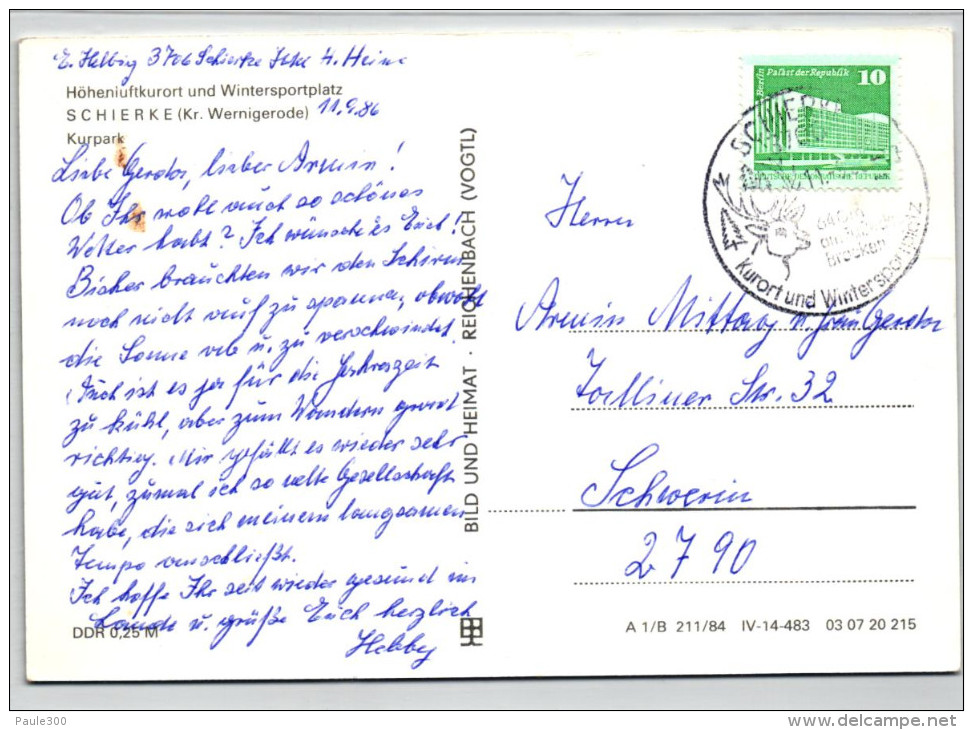 E. Helbig 3706 Schierke H. Heine
Höhenluftkurort und Wintersportplatz
SCHIERKE (Kr. Wernigerode) 11.9.86
Kurpark
Liebe Gerda, lieber Armin!
Ob Ihr wohl auch so schönes
Wetter habt? Ich wünsche es Euch!
Bisher brauchten wir den Schirm
noch nicht aufzuspannen, obwohl
die Sonne ab u. zu verschwindet.
Auch ist es ja für die Jahreszeit
zu kühl, aber zum Wandern gerade
richtig. Mir gefällt es wieder sehr
gut, zumal ich so nette Gesellschaft
habe, die sich meinem langsamen
Tempo anschließt.
Ich hoffe Ihr seit wieder gesund im
Lande u. grüße Euch herzlich
Helbig
DDR 0,25 M
BILD UND HEIMAT · REICHENBACH (VOGTL)
Berlin Palast der Republik 10
SCHIERKE
am
Brocken
Kurort und Wintersportplatz
Herrn
Armin Mittag u. Frau Gerda
Str. 32
Schwerin
2790
A 1/B 211/84 IV-14-483 03 07 20 215
Paule300
www.delcampe.net